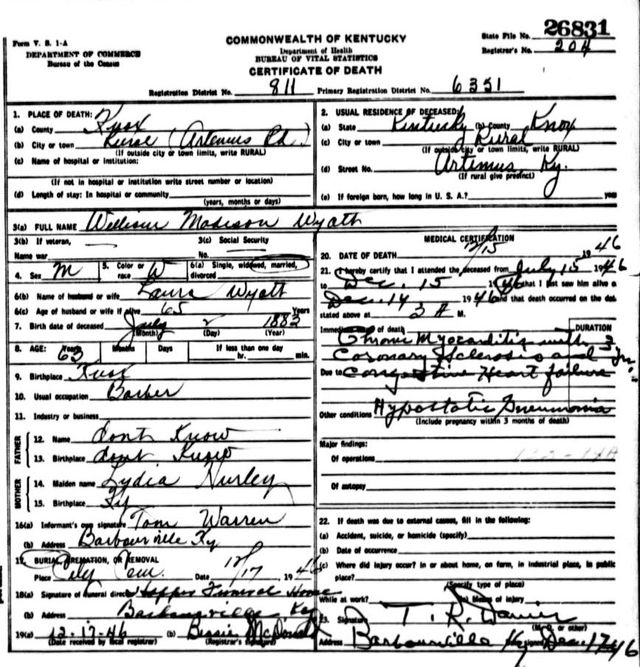 Form V. S. 1-A
DEPARTMENT OF COMMERCE
Bureau of the Census
COMMONWEALTH OF KENTUCKY
Department of Health
BUREAU OF VITAL STATISTICS
CERTIFICATE OF DEATH
State File No. 26831
Registrar's No. 204
Registration District No. 811 Primary Registration District No. 6351
1. PLACE OF DEATH:
(a) County Knox
(b) City or town Rural (Artemus Rd.)
(If outside city or town limits, write RURAL)
(c) Name of hospital or institution:
(If not in hospital or institution write street number or location)
(d) Length of stay: In hospital or community
(years, months or days)
2. USUAL RESIDENCE OF DECEASED:
(a) State Kentucky (b) County Knox
(c) City or town Rural
(If outside city or town limits, write RURAL)
(d) Street No. Artimus Ky.
(If rural give precinct)
(e) If foreign born, how long in U. S. A.?
3(a) FULL NAME William Madison Wyatt
3(b) If veteran,
Name war
3(c) Social Security
No.
4. Sex M
5. Color or race W
6(a) Single, widowed, married, divorced
6(b) Name of husband or wife Laura Wyatt
6(c) Age of husband or wife if alive 65 Years
7. Date of birth of deceased July 2 1883
(Month) (Day) (Year)
8. AGE: Years 63 Months Days If less than one day
hr. min.
9. Birthplace Knox
10. Usual occupation Barber
11. Industry or business
FATHER
12. Name dont Know
13. Birthplace dont Know
MOTHER
14. Maiden name Lydia Hurley
15. Birthplace Ky
16(a) Informant's own signature Tom Warren
(b) Address Barbourville Ky
17. BURIAL, CREMATION, OR REMOVAL
Place City Cem. Date 12/17 1946
18(a) Signature of funeral director Hopper Funeral Home
(b) Address Barbourville Ky
19(a) 12-17-46 (b) Bessie McDonald
(Date received by local registrar) (Registrar's signature)
MEDICAL CERTIFICATION
20. DATE OF DEATH 12/15 1946
21. I hereby certify that I attended the deceased from July 15 1946
to Dec. 15 1946 that I last saw him alive
Dec. 14 1946 and that death occurred on the date
stated above at 3 A M.
DURATION
Immediate cause of death
Chronic Myocarditis with
Coronary Sclerosis and
Due to Congestive Heart failure
Other conditions Hypostatic Pneumonia
(Include pregnancy within 3 months of death)
Major findings:
Of operations
Of autopsy
22. If death was due to external causes, fill in the following:
(a) Accident, suicide, or homicide (specify)
(b) Date of occurrence
(c) Where did injury occur? In or about home, on farm, in industrial place, in public
place?
(Specify type of place)
While at work? (e) Means of injury
23. Signature T. R. Davies
(M. D. or other)
Address Barbourville Ky Dec. 17 46